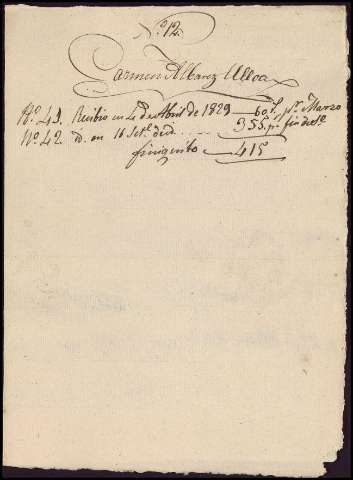 Nº 12.
Carmen Albarez Ulloa
Nº. 41. Recibio en 4 de Abril de 1829 60 pr. Marzo
Nº. 42. D. en 16 Set.e de id. 355. pr. fin de
finiquito 415